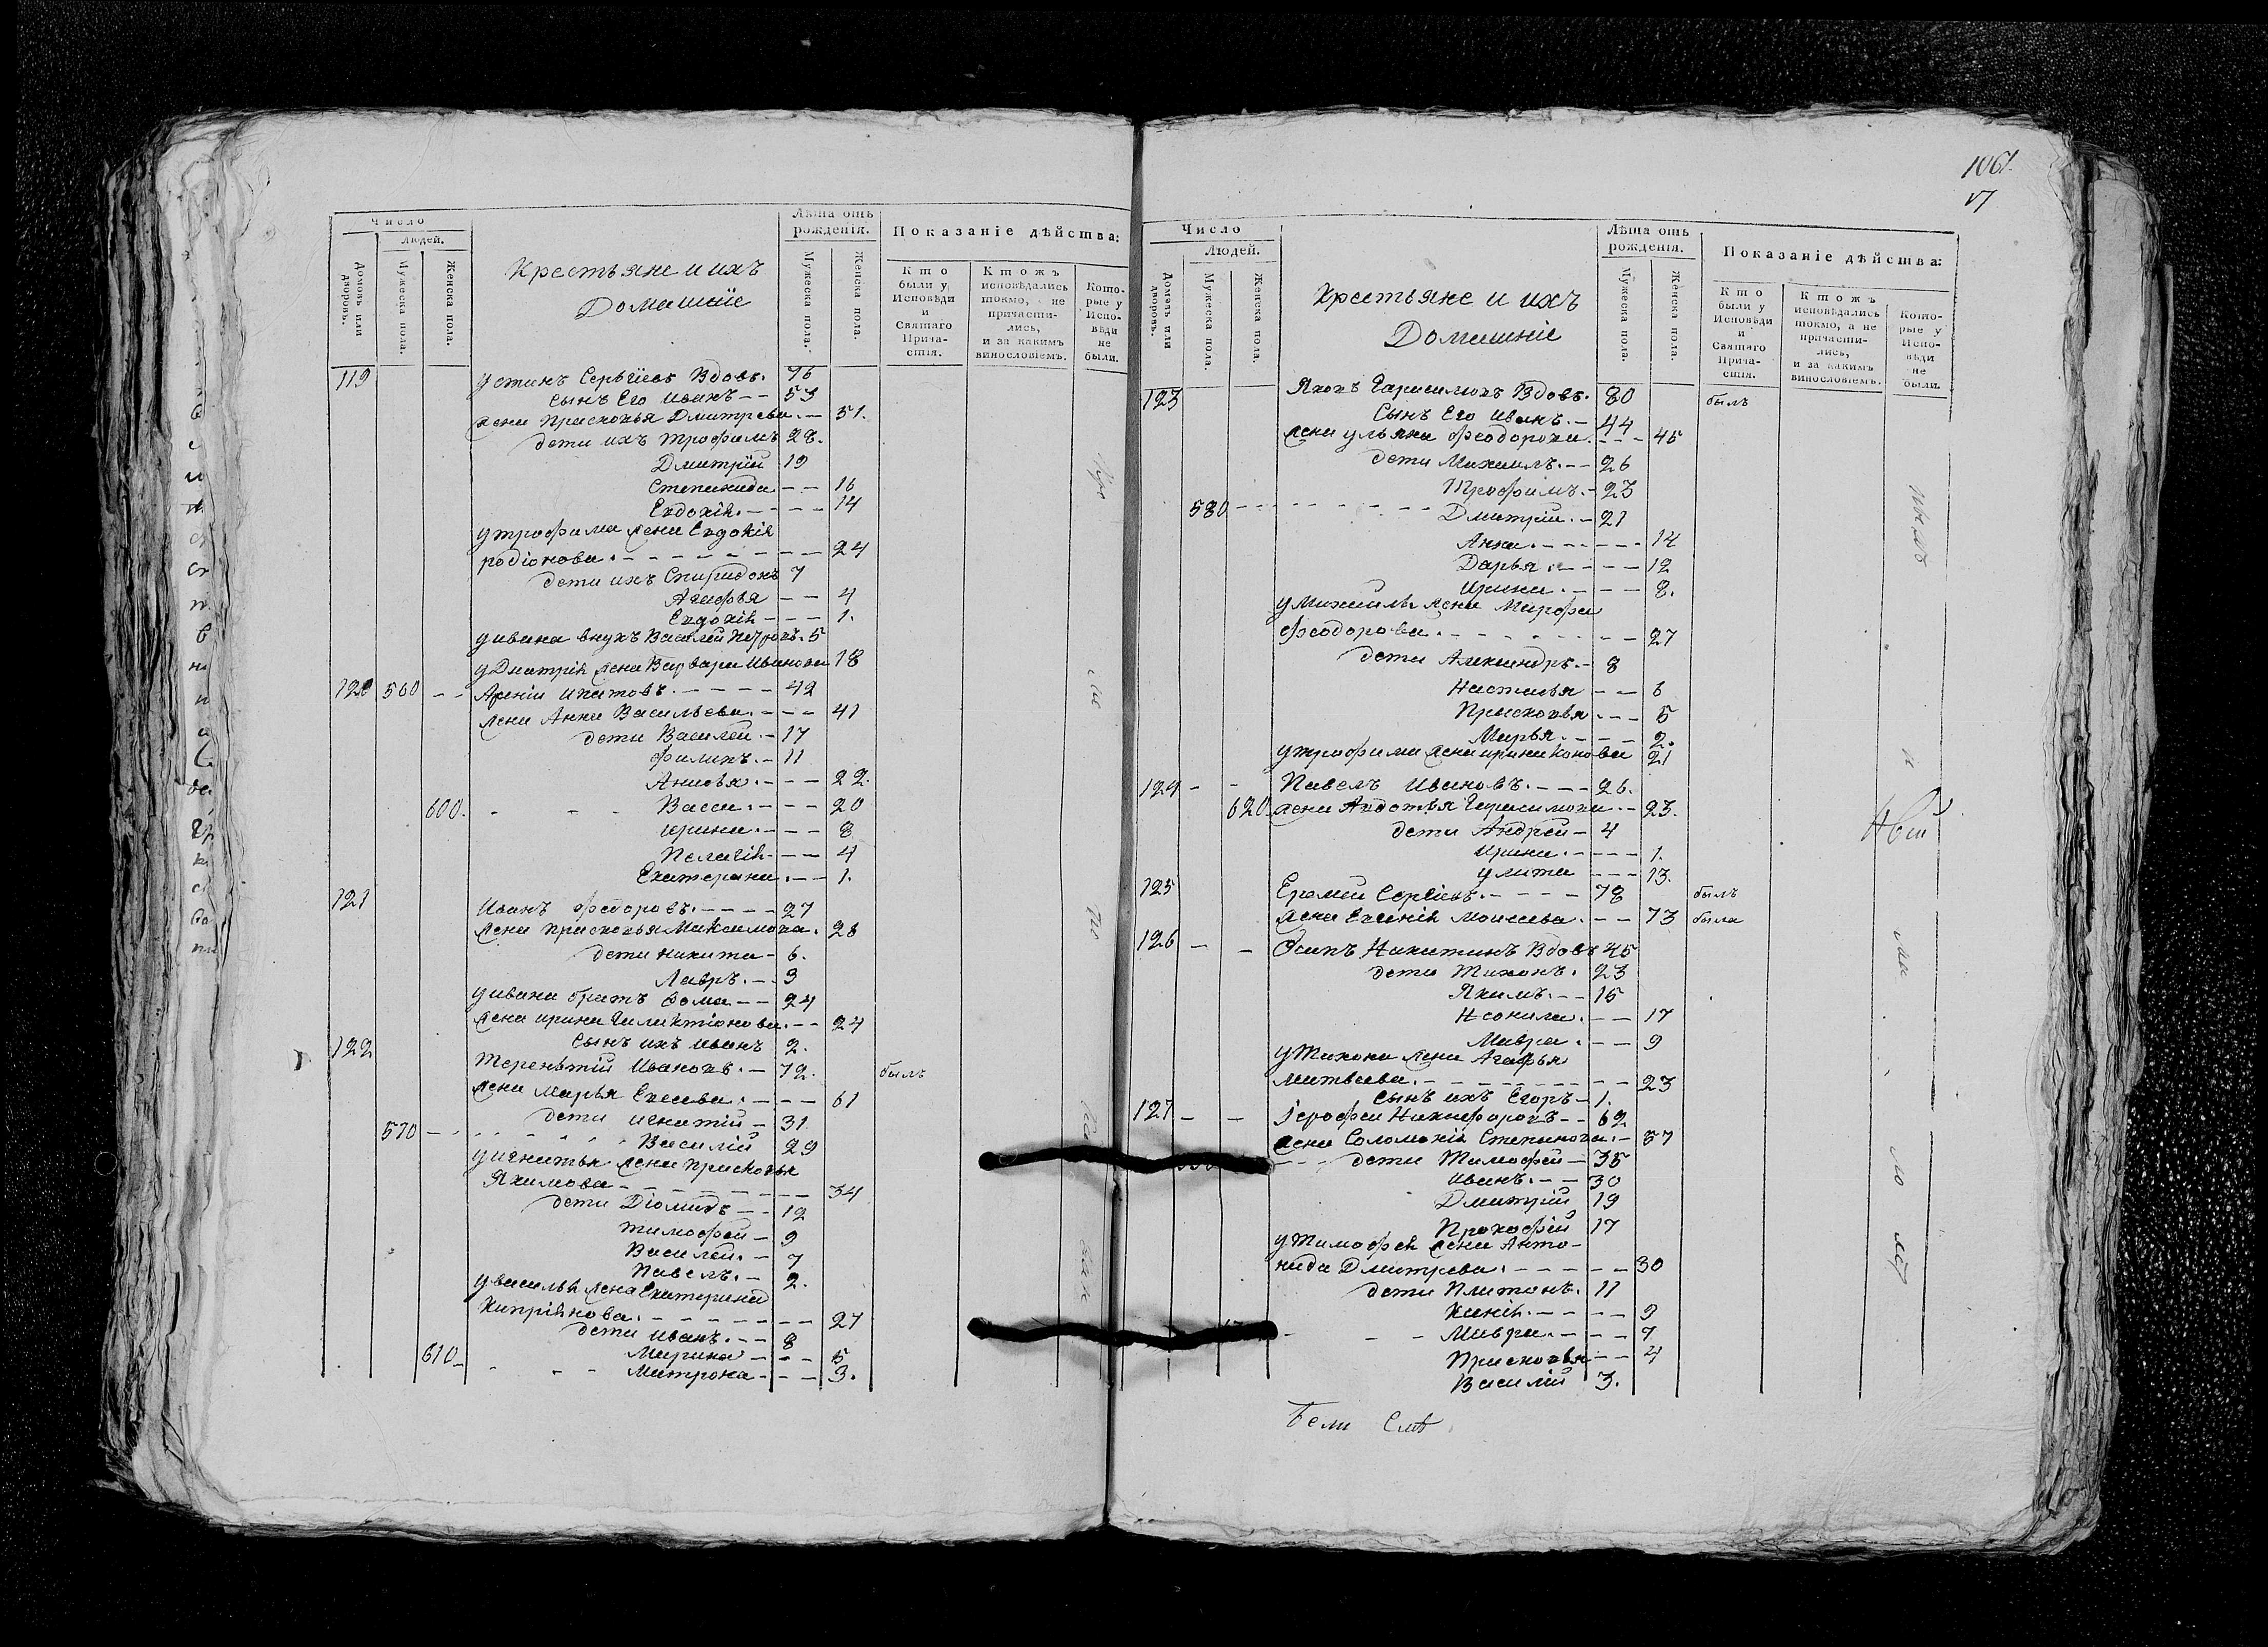 Число
Людей.
Домовъ или дворовъ.
Мужеска пола.
Женска пола.
Крестьяне и ихъ
Домашніе
Лѣта отъ
рожденія.
Мужеска пола.
Женска пола.
Показаніе дѣйства:
Кто были у Исповѣди и Святаго Прича-стія.
Ктожъ исповѣдались токмо, не причасти-лись, и за какимъ винословіемъ.
Кото-рые у Испо-вѣди не были.
119 Устинъ Сергѣевъ Вдовъ. 76
сынъ Его Иванъ 53
жена Прасковья Дмитрева 51.
дети ихъ Трофимъ 28.
Дмитрій 19
Степанида 16
Евдокія 14
у трофима жена Евдокія
родіонова 24
дети ихъ Спиридонъ 7
Агафья 4
Евдокія 1.
у ивана внукъ Василей Петровъ. 5
у Дмитрія жена Варвара Иванова 18
120 560 42
жена Анна Васильева 41
дети Василей 17
Филипъ 11
Анисья 22.
600. Васса 20
Ирина 8
Пелагія 4
Екатерина 1.
121 Иванъ Федоровъ 27
жена Прасковья Максимова. 28
дети Никита 6.
Лавръ 3
у ивана братъ Фома 24
жена ирина Галактіонова 24
сынъ ихъ иванъ 2.
122 Терентій Ивановъ 72. былъ
жена Марья Евсеева 61
дети игнатій 31
570 Василій 29
у игнатья жена прасковья
Якимова 34
дети Діомидъ 12
тимофей 9
Василей 7
Павелъ 2.
у василья жена Екатерина
Кипріянова 27
дети иванъ 8
610 Марина 5
Матрона 3.
1061.
Число
Людей.
Домовъ или дворовъ.
Мужеска пола.
Женска пола.
Крестьяне и ихъ
Домашніе
Лѣта отъ
рожденія.
Мужеска пола.
Женска пола.
Показаніе дѣйства:
Кто были у Исповѣди и Святаго Прича-стія.
Ктожъ исповѣдались токмо, а не причасти-лись, и за какимъ винословіемъ.
Кото-рые у Испо-вѣди не были.
123 Яковъ Гарасимовъ Вдовъ. 80 былъ
Сынъ Его Иванъ 44
жена ульяна Феодорова 45
дети Михаилъ 26
Трофимъ 23
580 Дмитрій 21
Анна 14
Дарья 12
Ирина 8.
у Михаила жена Марфа
Феодорова 27
дети Александръ 8
Настасья 6
Прасковья 5
Марья 2.
у трофима жена ирина 21
124 Павелъ Ивановъ 26.
620 жена Авдотья Гарасимова 23.
дети Андрей 4
Ирина 1.
улита 13.
125 Еремей Сергѣевъ 78 былъ
жена Евгенія Моисеева 73 была
126 Осипъ Никитинъ Вдовъ 45
дети Тихонъ. 23
Якимъ 15
Неонила 17
Мавра 9
у Тихона жена Агафья
Матвеева 23
сынъ ихъ Егоръ 1.
127 Никифоровъ 62
жена Соломонія Степанова 57
дети Тимофей 35
Иванъ 30
Дмитрій 19
Прокофій 17
у Тимофея жена Анто-
нида Дмитрева 30
дети Платонъ. 11
Ксенія 9
Мавра 7
Прасковья 4
Василій 3.